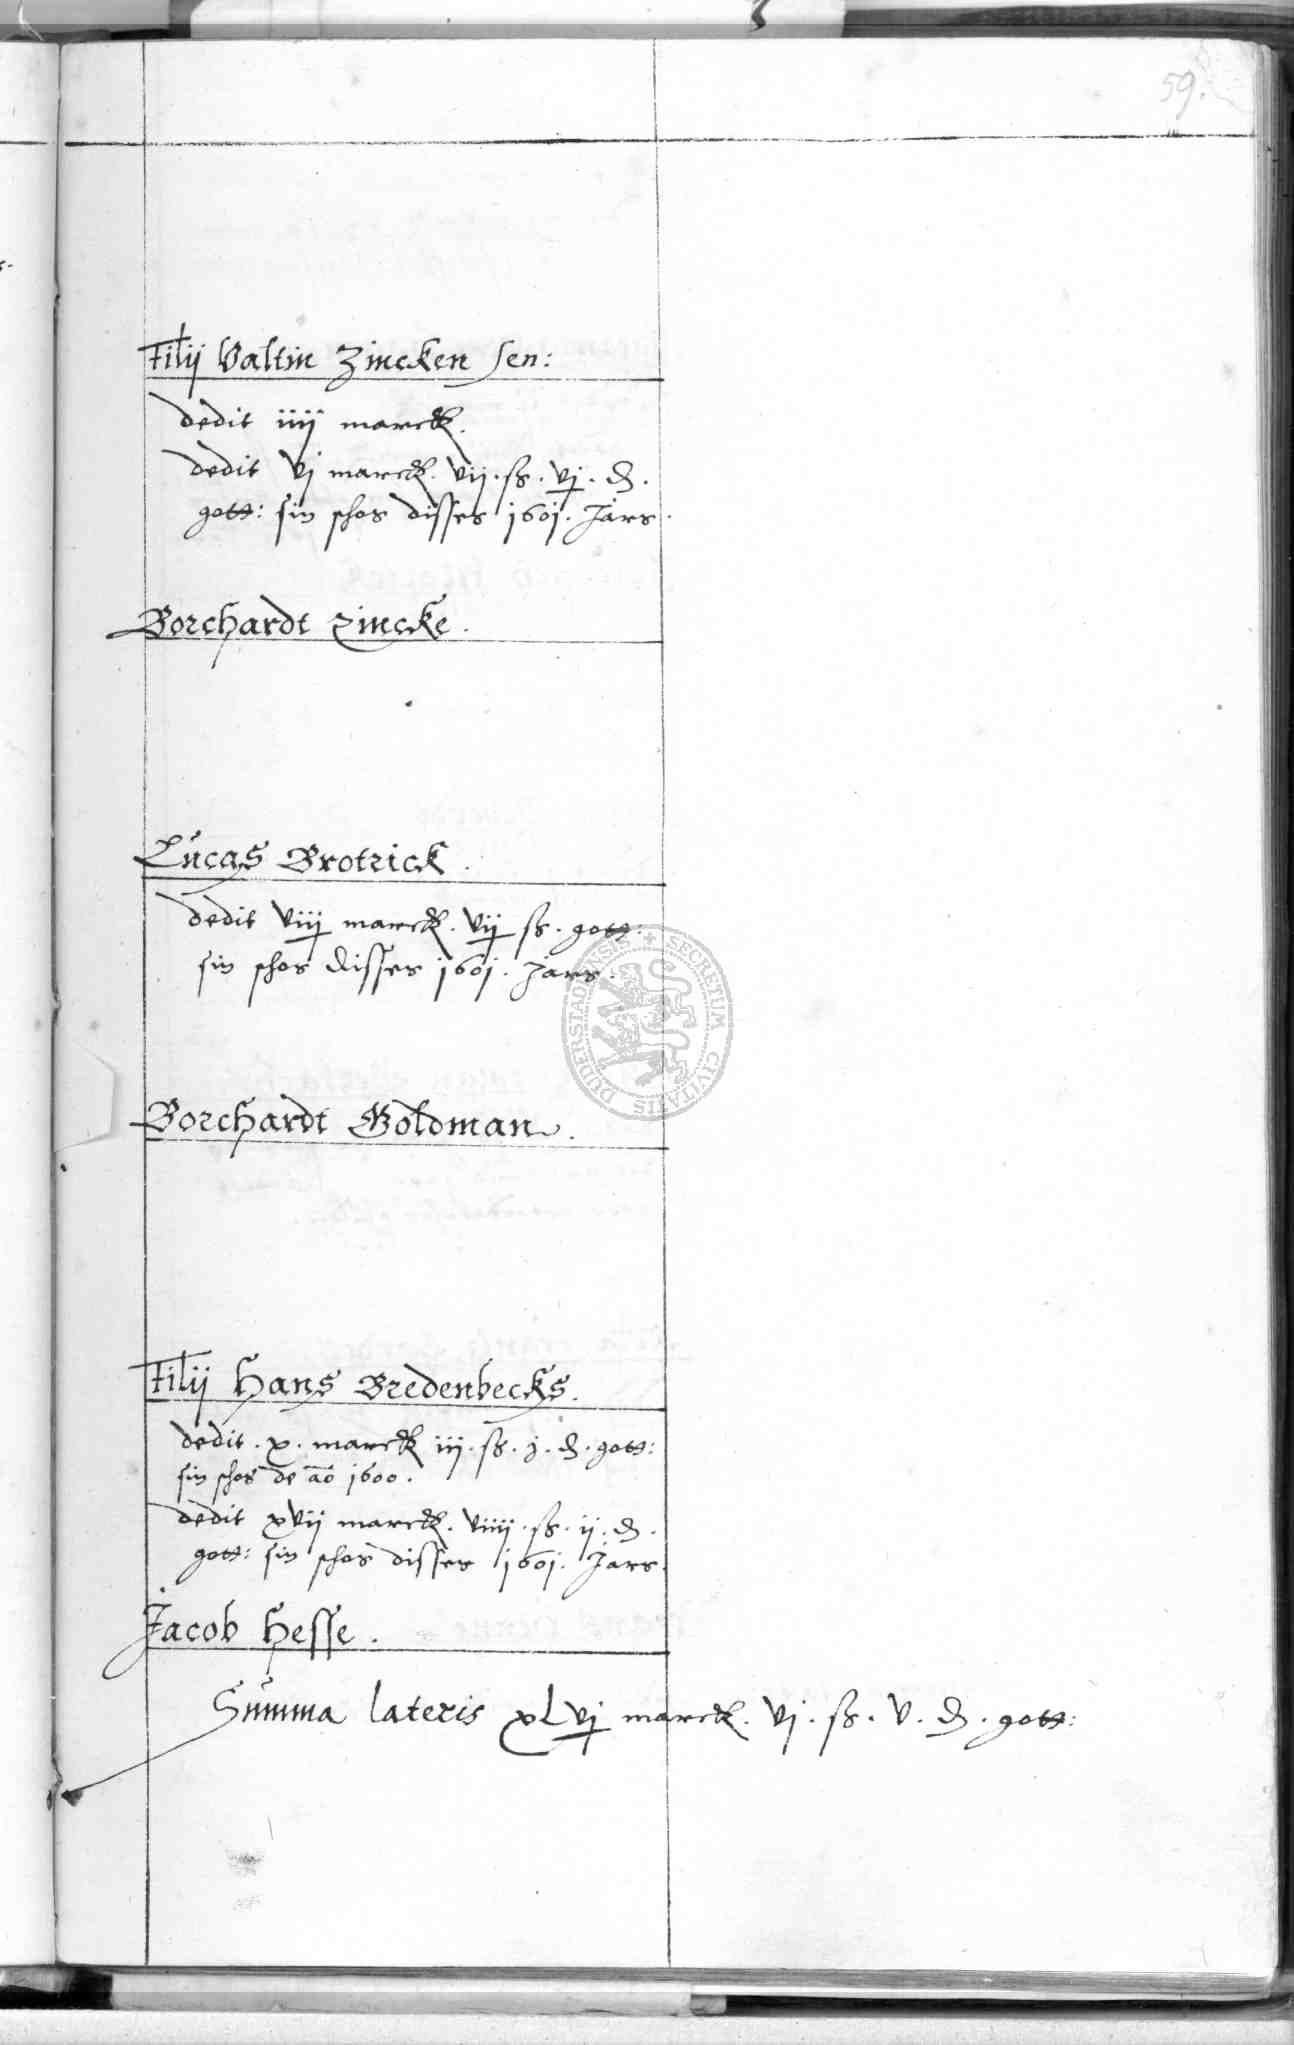 59.
Filij Valtin Zincken sen:
dedit iiij marck.
dedit vj marck. vij. ß. vj. ₰.
gott: sin schos disses 1601. Jars.
Borchardt Zincke.
Lucas Brotrick.
dedit viij marck. vij ß. gott:
sin schos disses 1601. Jars.
Borchardt Goldman.
Filij Hans Bredenbecks.
dedit. x. marck iij. ß. j. ₰. gott:
sin schos de ao 1600.
dedit xvij marck. viiij. ß. ij. ₰.
gott: sin schos disses 1601. Jars.
Jacob Hesse.
Summa lateris xLvj marck. vj. ß. v. ₰. gott:
SECRETUM CIVITATIS DUDERSTADENSIS